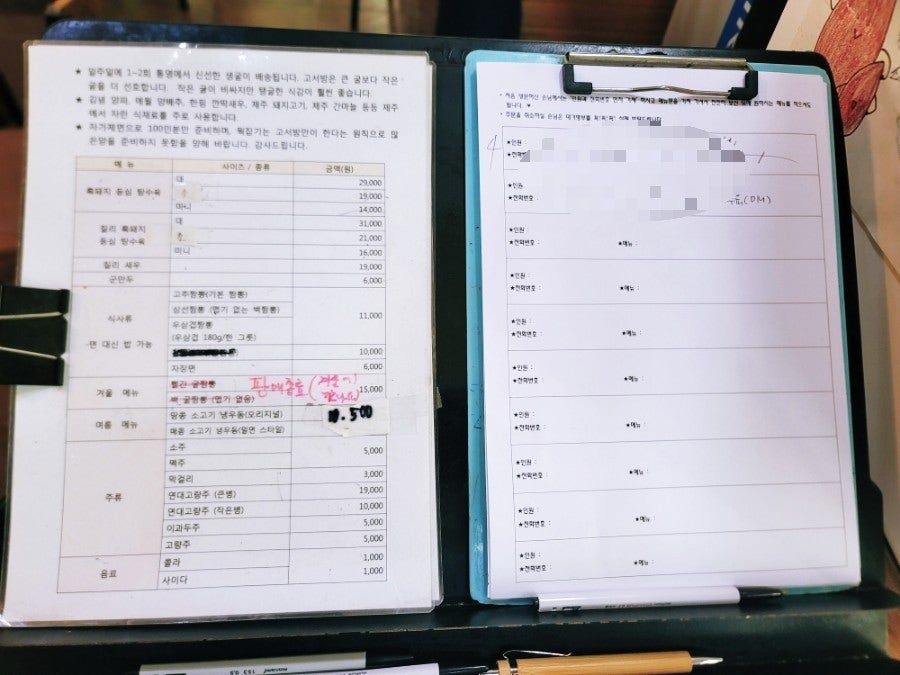 ★ 일주일에 1~2회 통영에서 신선한 생굴이 배송됩니다. 고서방은 큰 굴보다 작은
굴을 더 선호합니다. 작은 굴이 비싸지만 탱글한 식감이 훨씬 좋습니다.
★ 김녕 양파, 애월 양배추, 한림 깐싹새우, 제주 돼지고기, 제주 간마늘 등등 제주
에서 자란 식재료를 주로 사용합니다.
★ 자가제면으로 100인분만 준비하며, 웍잡기는 고서방만이 한다는 원칙으로 많
은양을 준비하지 못함을 양해 바랍니다. 감사드립니다.
메 뉴 사이즈 / 종류 금액(원)
흑돼지 등심 탕수육
대 29,000
19,000
미니 14,000
칠리 흑돼지
등심 탕수육
대 31,000
21,000
미니 16,000
칠리 새우 19,000
군만두 6,000
식사류
면 대신 밥 가능
고추짬뽕(기본 짬뽕)
삼선짬뽕 (맵기 없는 백짬뽕)
우삼겹짬뽕
(우삼겹 180g/한 그릇)
11,000
10,000
자장면 6,000
겨울 메뉴
빨간 굴짬뽕
백 굴짬뽕 (맵기 없음)
15,000
판매종료 (겨울에
만나요)
여름 메뉴
땅콩 소고기 냉우동(오리지널)
매콤 소고기 냉우동(알면 스타일)
10.500
주류
소주
맥주
5,000
막걸리 3,000
연대고량주 (큰병) 19,000
연대고량주 (작은병) 10,000
이과두주 5,000
고량주 5,000
음료
콜라 1,000
사이다 1,000
★인원 :
★전화번호
★인원
★전화번호
★인원 :
★전화번호 : ★메뉴 :
★인원 :
★전화번호 : ★메뉴 :
★인원 :
★전화번호 : ★메뉴 :
★인원 :
★전화번호 : ★메뉴 :
★인원 :
★전화번호 : ★메뉴 :
★인원 :
★전화번호 : ★메뉴 :
★인원 :
★전화번호 : ★메뉴 :
★인원 :
★전화번호 : ★메뉴 :
153 0.5